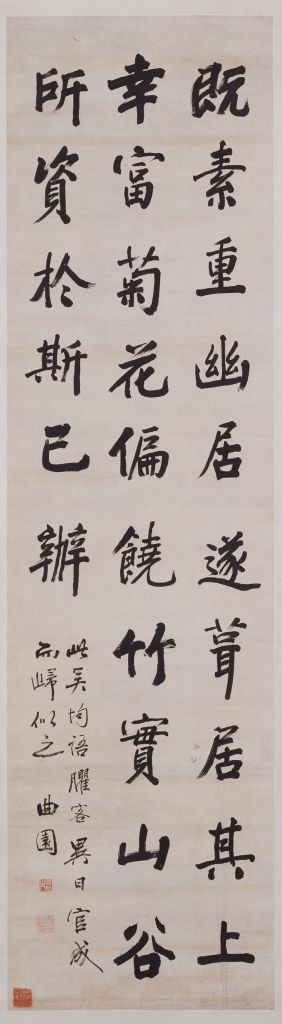 既素重幽居遂葺居其上
幸富菊花偏饒竹實山谷
所資於斯已辦
此吳均語臞客異日官成
而歸似之曲園